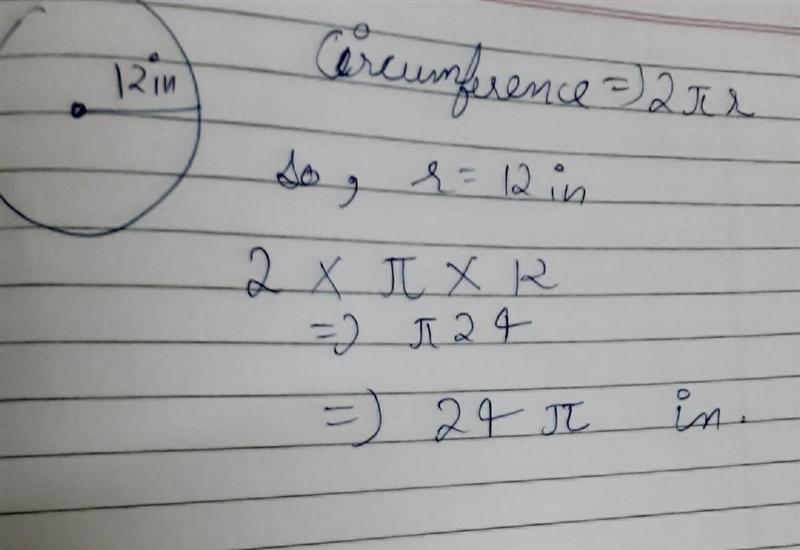 12in
Circumference => 2πr
so, r = 12 in
2 × π × 12
=> π24
=> 24 π in.